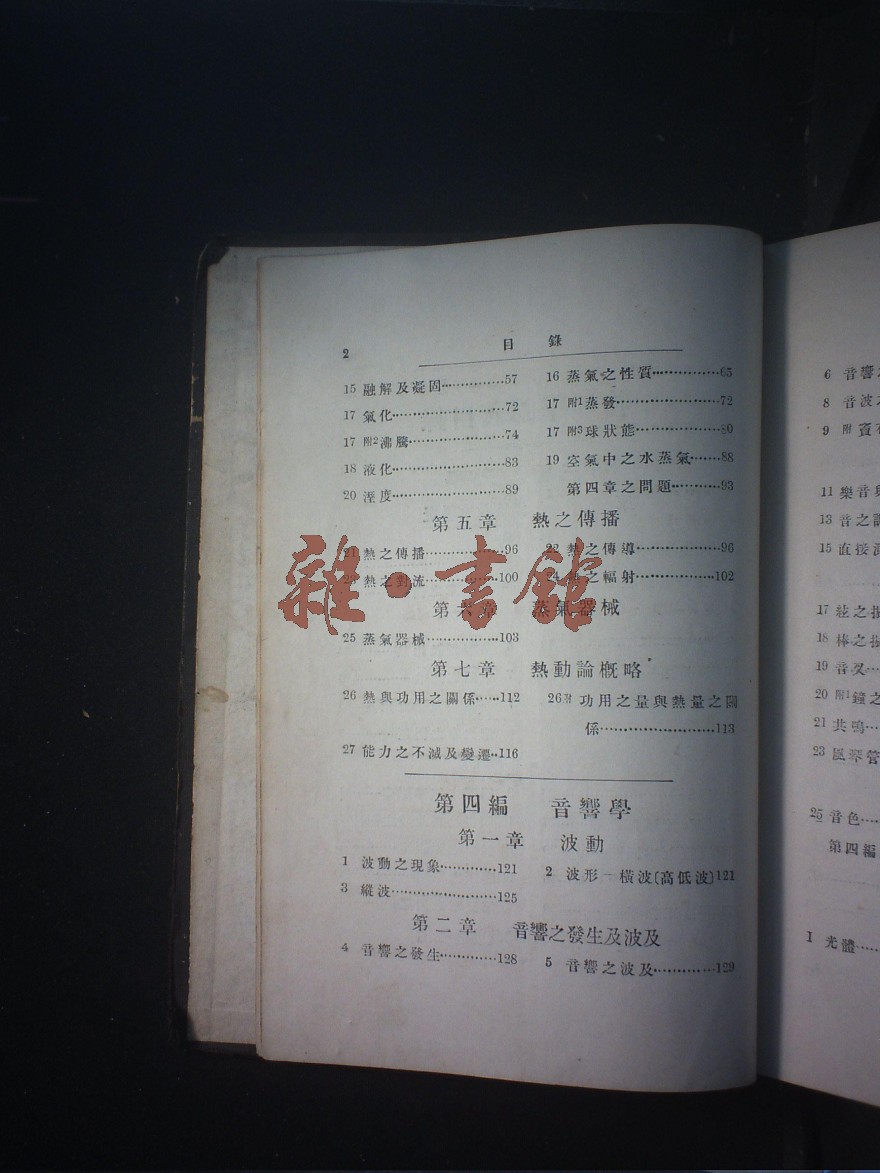 2
目錄
15 融解及凝固……………57
16 蒸氣之性質……………65
17 氣化……………………72
17 附1蒸發…………………72
17 附2沸騰…………………74
17 附3球狀態………………80
18 液化……………………83
19 空氣中之水蒸氣……88
20 溼度……………………89
第四章之問題…………93
第五章 熱之傳播
21 熱之傳播………………96
22 熱之傳導………………96
23 熱之對流………………100
24 熱之輻射………………102
第六章 蒸氣器械
25 蒸氣器械………………103
第七章 熱動論概略
26 熱與功用之關係……112
26附 功用之量與熱量之關
係………………………113
27 能力之不滅及變遷…116
第四編 音響學
第一章 波動
1 波動之現象……………121
2 波形—橫波〔高低波〕121
3 縱波……………………125
第二章 音響之發生及波及
4 音響之發生……………128
5 音響之波及……………129
雜·書館
6 音響之
8 音波之
9 附
11 樂音與
13 音之
15 直接
17 弦之
18 棒之
19 音叉…
20 附1鐘之
21 共鳴…
23 風琴管
25 音色…
第四編
1 光體…